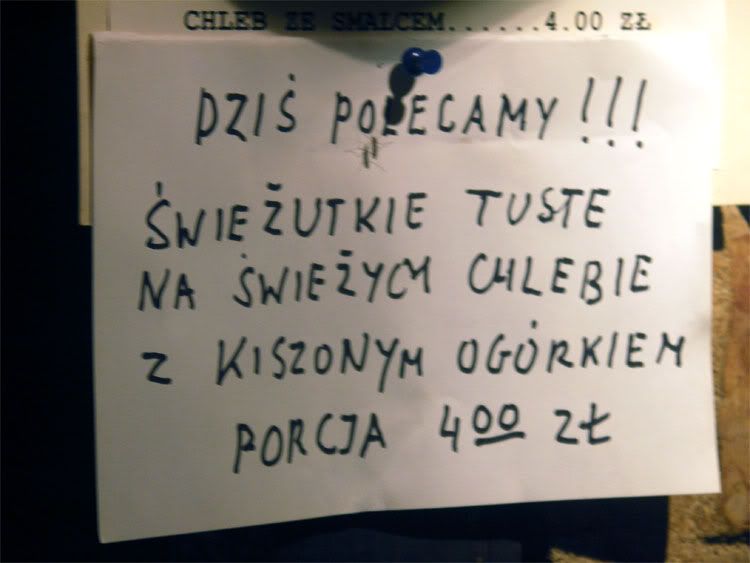 CHLEB ZE SMALCEM......4.00 ZŁ
DZIŚ POLECAMY !!!
ŚWIEŻUTKIE TUSTE
NA ŚWIEŻYM CHLEBIE
Z KISZONYM OGÓRKIEM
PORCJA 4 00 ZŁ